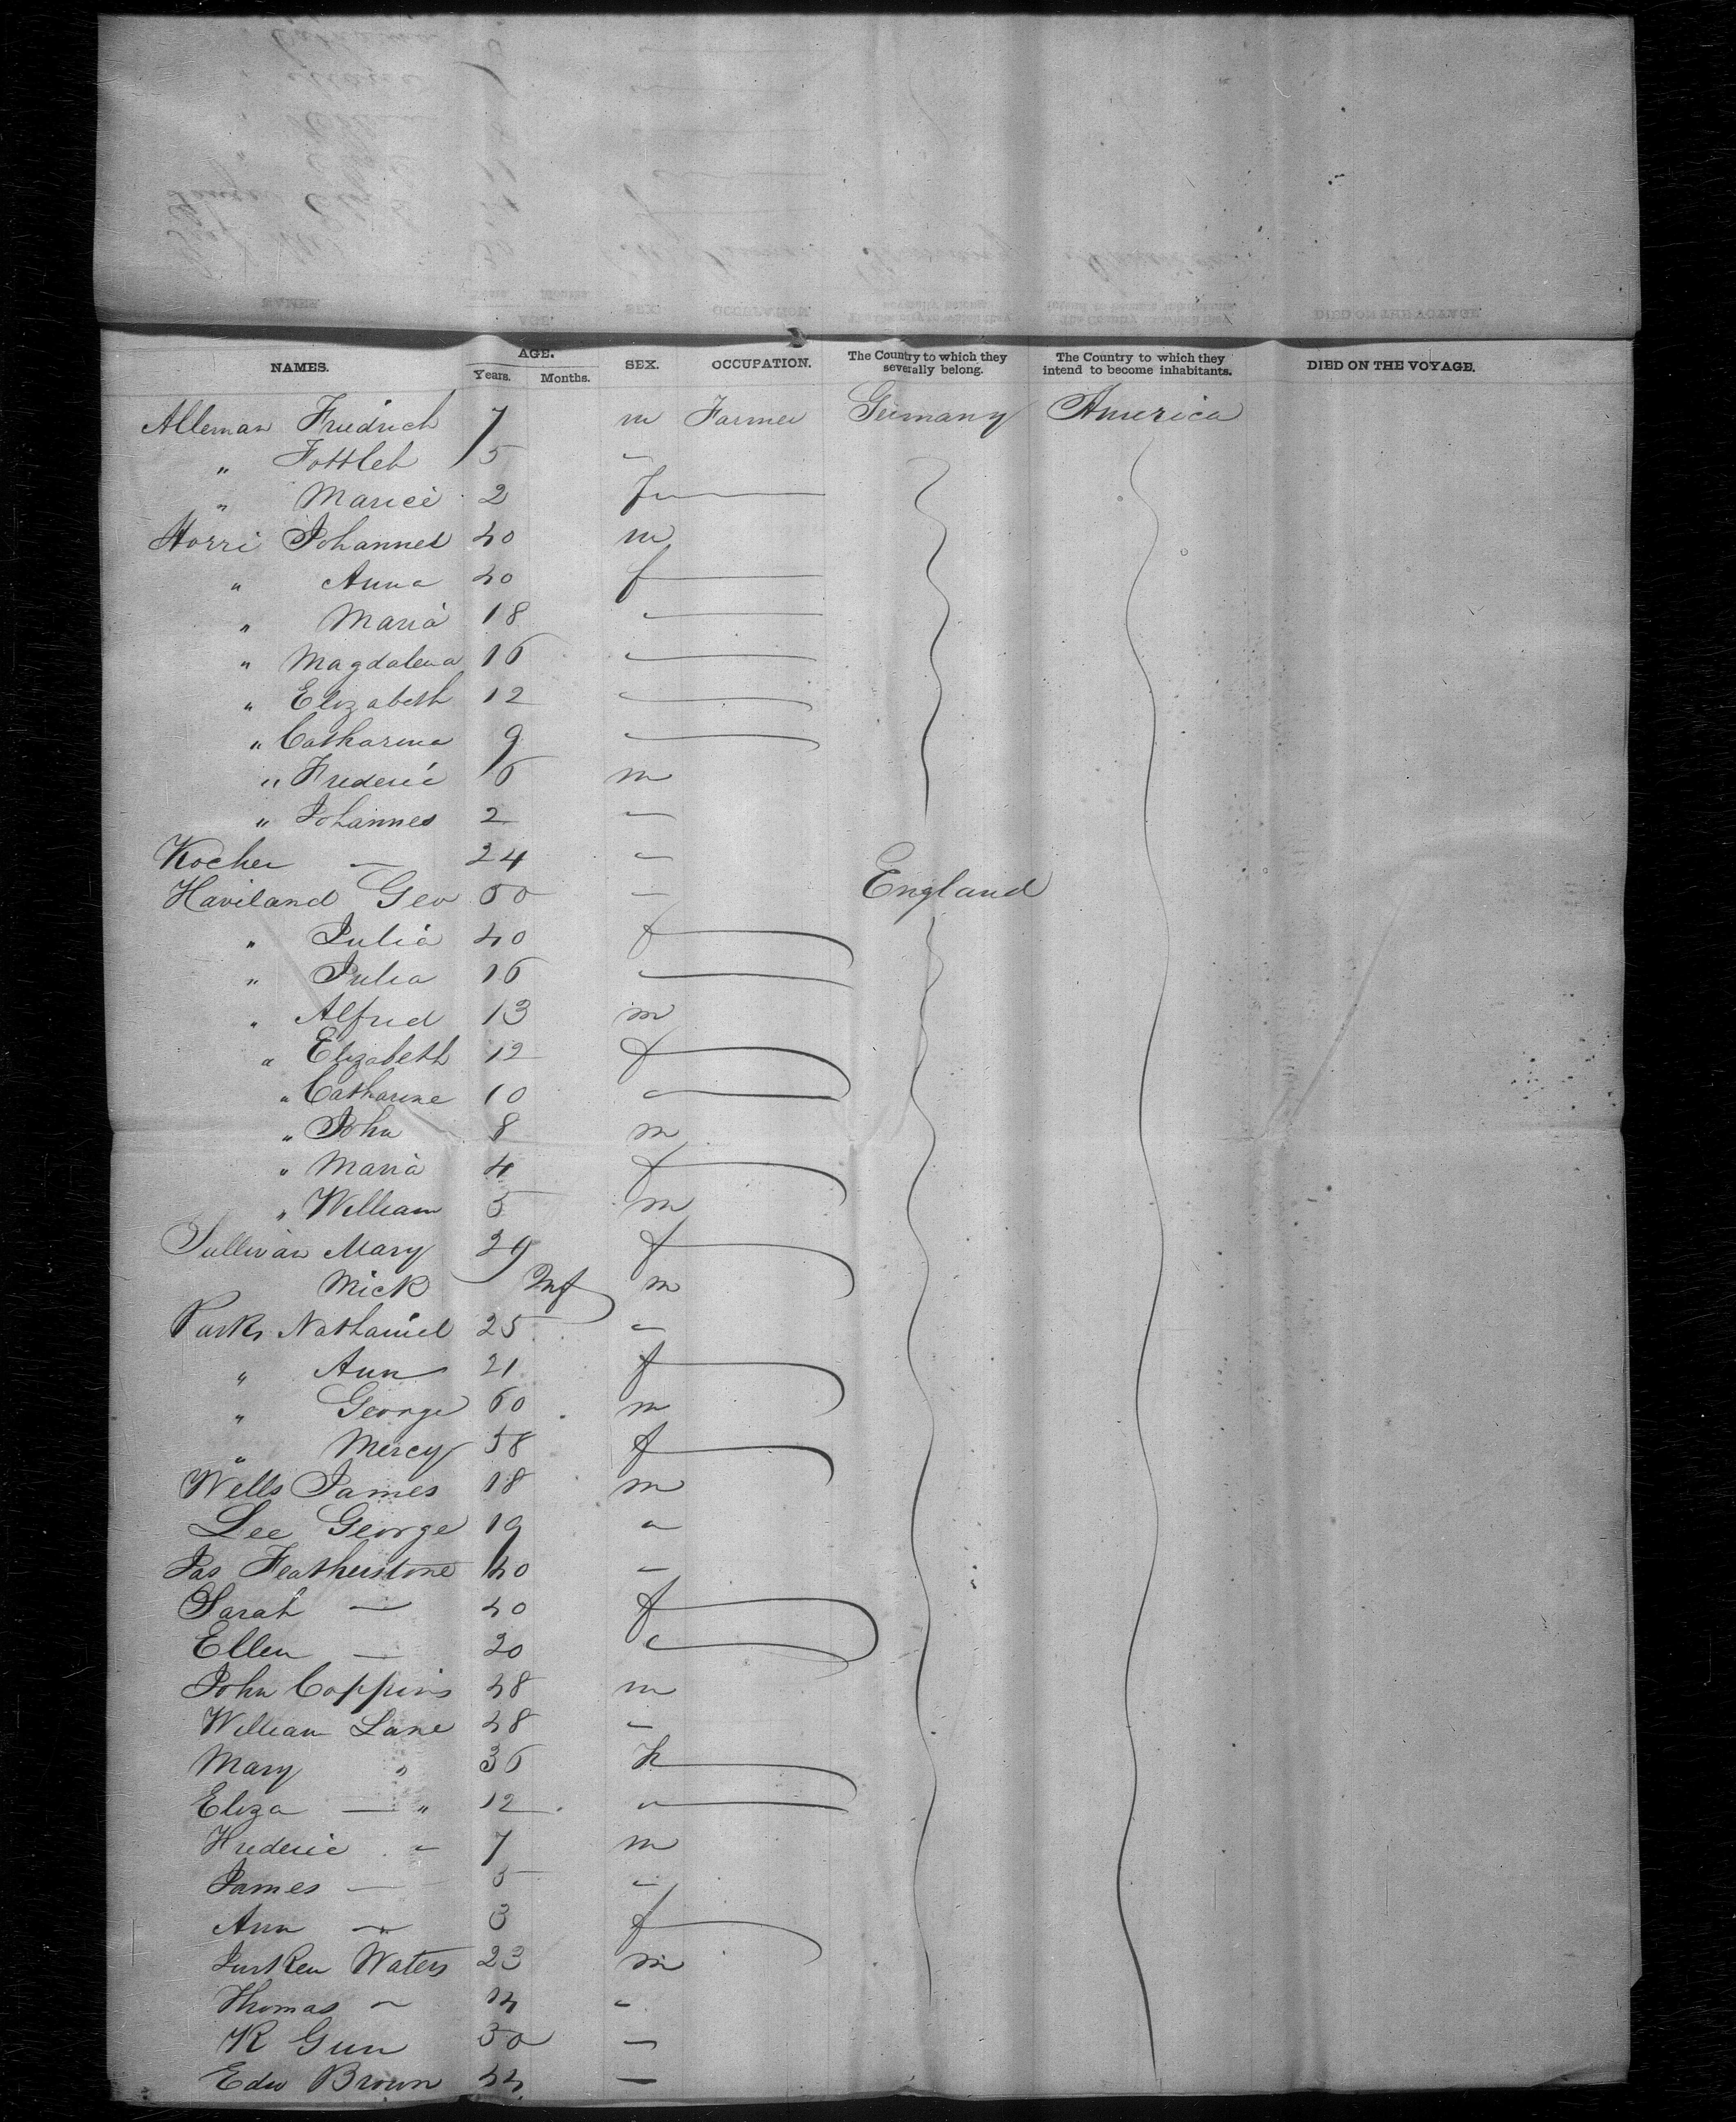 NAMES. AGE. Years. Months. SEX. OCCUPATION. The Country to which they severally belong. The Country to which they intend to become inhabitants. DIED ON THE VOYAGE.
Alleman Friedrich 7 m Farmer Germany America
" Gottleb 5 "
" Mariei 2 f
Horri Johannes 40 m
" Anna 40 f
" Maria 18 "
" Magdalena 16 "
" Elizabeth 12 "
" Catharina 9 "
" Frederic 6 m
" Johannes 2 "
Kocher — 24 "
Haviland Geo 50 — England
" Julia 40 f
" Julia 16 "
" Alfred 13 m
" Elizabeth 12 f
" Catharine 10 "
" John 8 m
" Maria 4 f
" William 5 m
Sullivan Mary 29 f
Mick Inf m
Parks Nathaniel 25 "
" Ann 21 f
" George 60 m
" Mercy 58 f
Wells James 18 m
Lee George 19 "
Jas Featherstone 40 "
Sarah — 40 f
Ellen — 20 "
John Coppins 48 m
William Lane 48 "
Mary " 36 f
Eliza — " 12 "
Frederic " 7 m
James — 5 "
Ann — 3 f
Waters 23 m
Thomas " 14 "
K Gun 50 —
Edw Brown 44 —